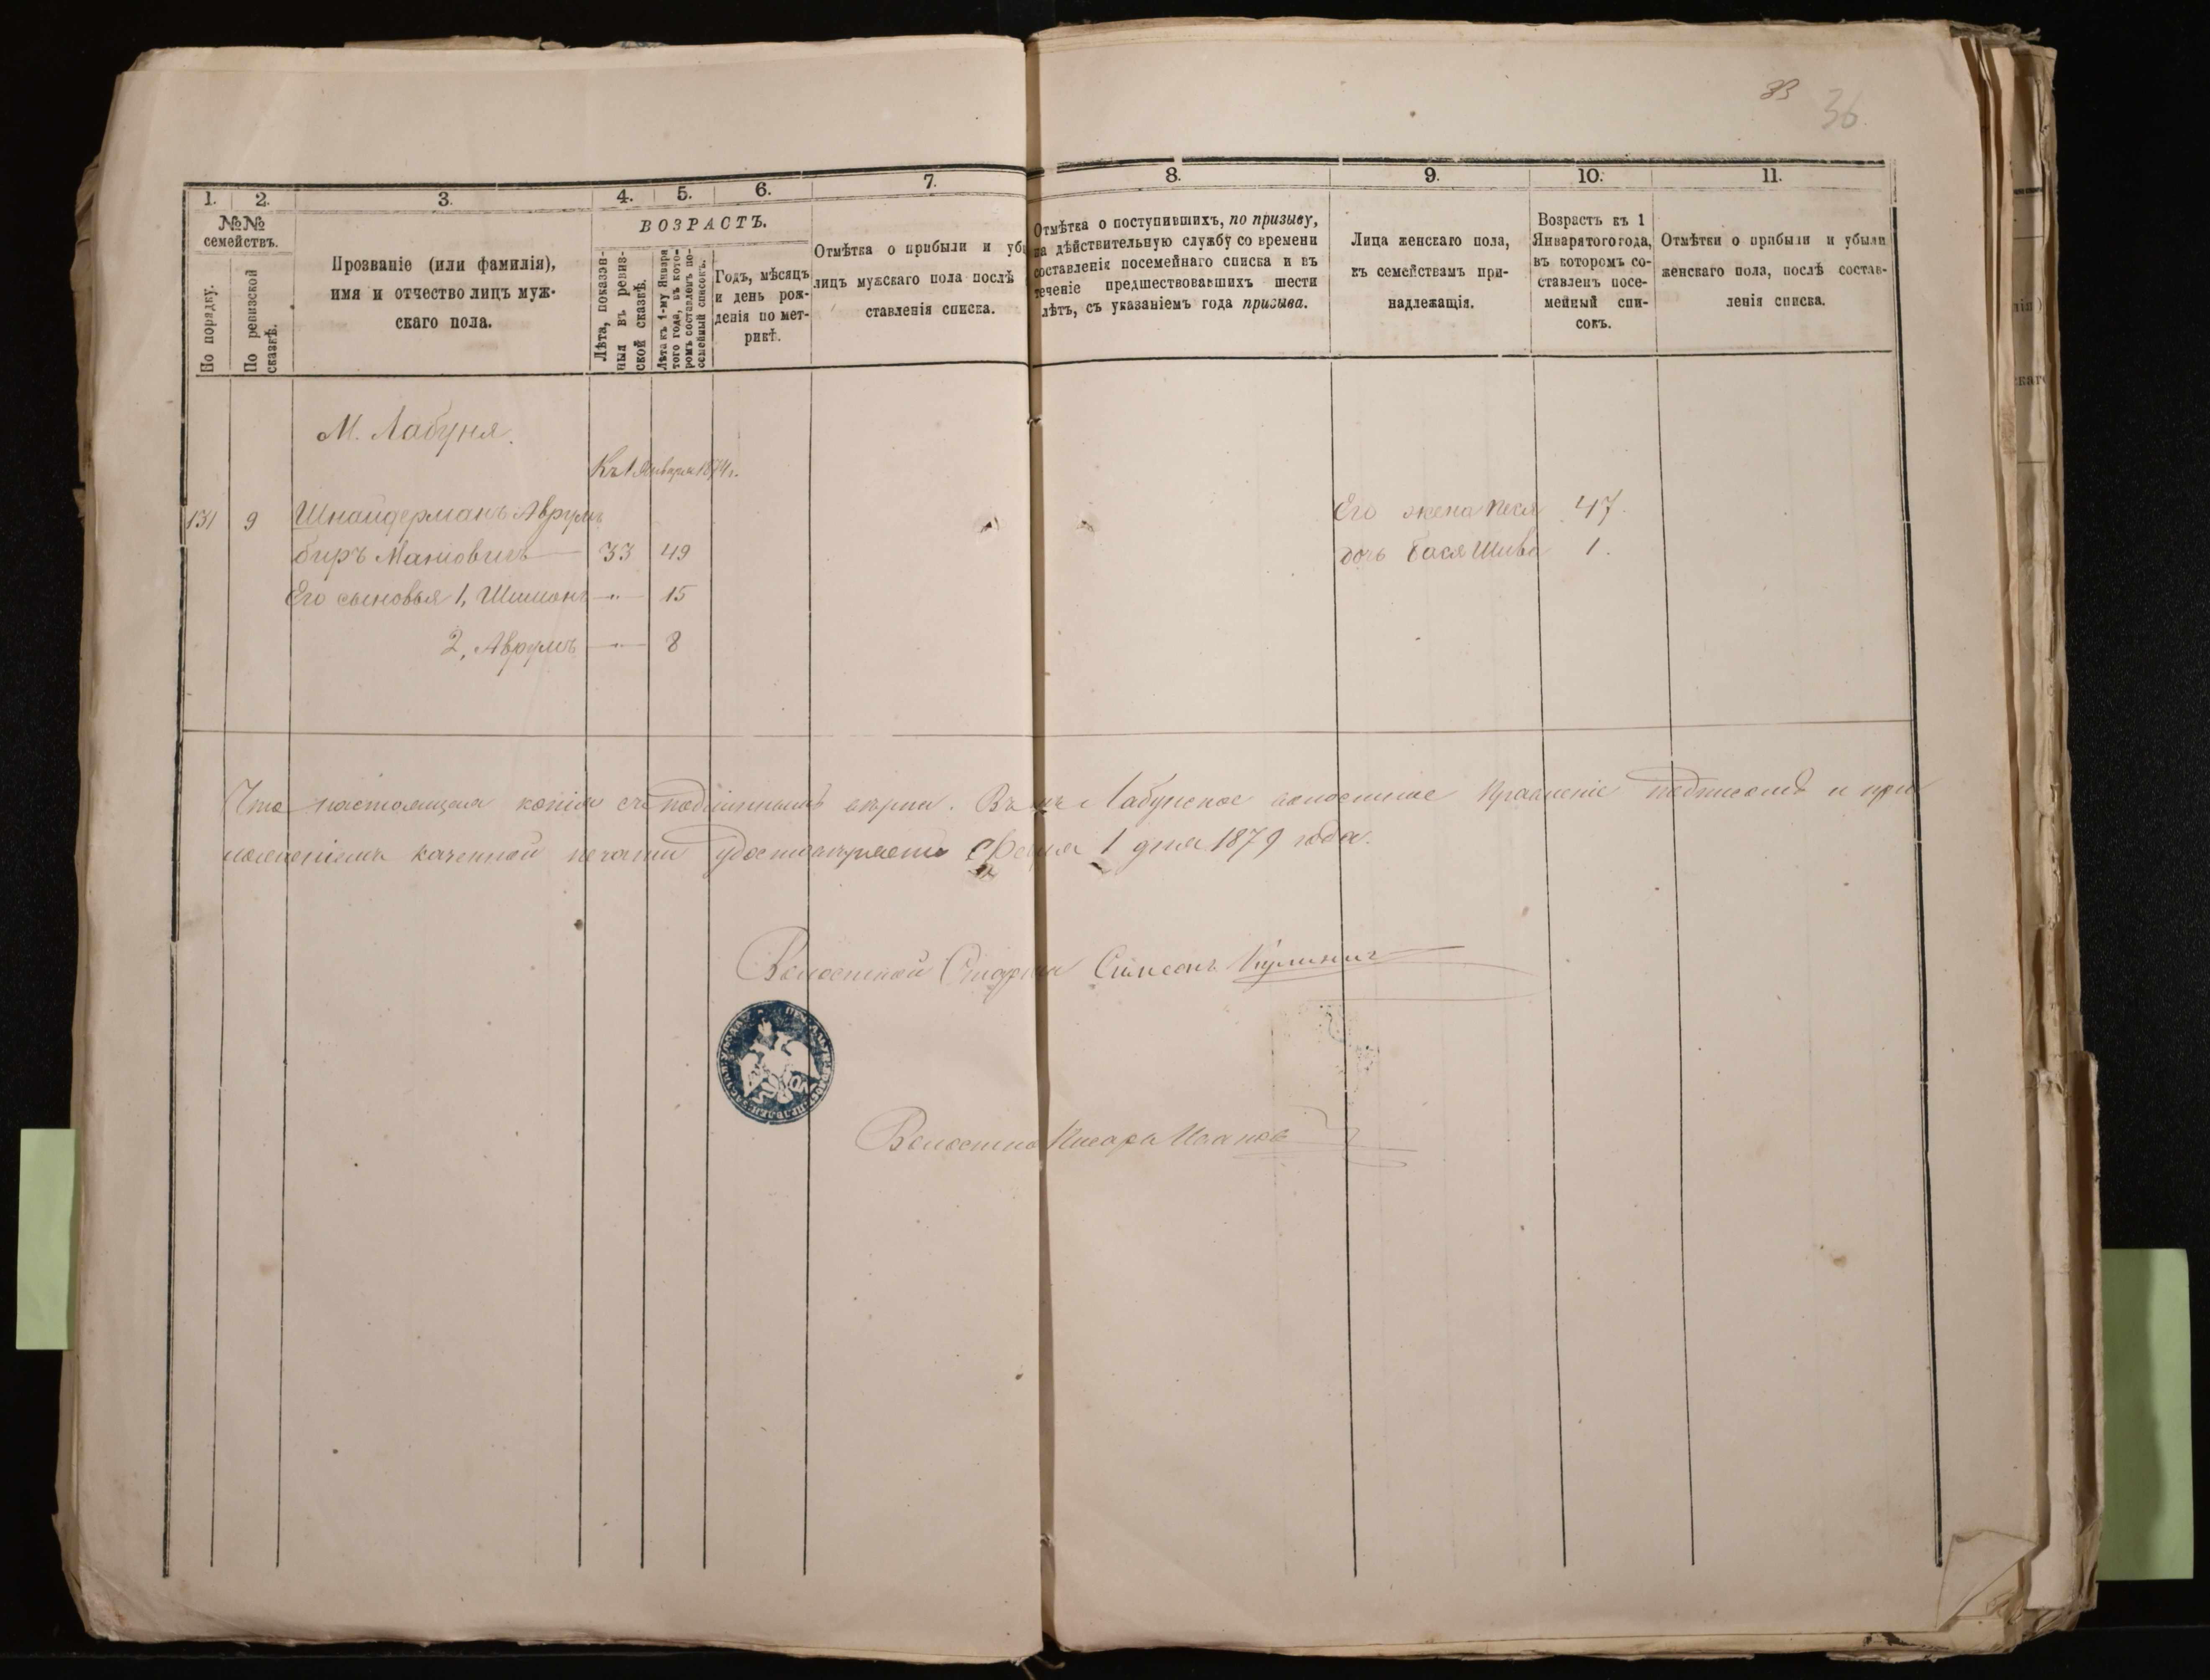 33
36
1.
2.
3.
4.
5.
6.
7.
8.
9.
10.
11.
№№
семействъ.
По порядку.
По ревизской
сказкѣ.
Прозваніе (или фамилія),
имя и отчество лицъ муж-
скаго пола.
ВОЗРАСТЪ.
Лѣта, показан-
ныя въ ревиз-
ской сказкѣ.
Лѣта къ 1-му Января
того года, въ кото-
ромъ составленъ по-
семейный списокъ.
Годъ, мѣсяцъ
и день рож-
денія по мет-
рикѣ.
Отмѣтка о прибыли и убы
лицъ мужскаго пола послѣ
ставленія списка.
Отмѣтка о поступившихъ, по призыву,
на дѣйствительную службу со времени
составленія посемейнаго списка и въ
теченіе предшествовавшихъ шести
лѣтъ, съ указаніемъ года призыва.
Лица женскаго пола,
къ семействамъ при-
надлежащія.
Возрастъ къ 1
Января того года,
въ которомъ со-
ставленъ посе-
мейный спи-
сокъ.
Отмѣтки о прибыли и убыли
женскаго пола, послѣ состав-
ленія списка.
М. Лабуня.
Къ 1 Января 1874 г.
131 9 Шнайдерманъ Аврумъ
беръ Маніовичъ 33 49
Его сыновья 1, Шимонъ " 15
2, Аврумъ " 8
Его жена Песя 47.
дочь Бася Шива 1.
Что настоящая копія съ подлиннымъ вѣрна. Въ Лабунское волостное Правленіе подписомъ и при
ложеніемъ казенной печати удостовѣряетъ 1 дня 1879 года.
Волостной Старшина Симеонъ
Волостной Писарь